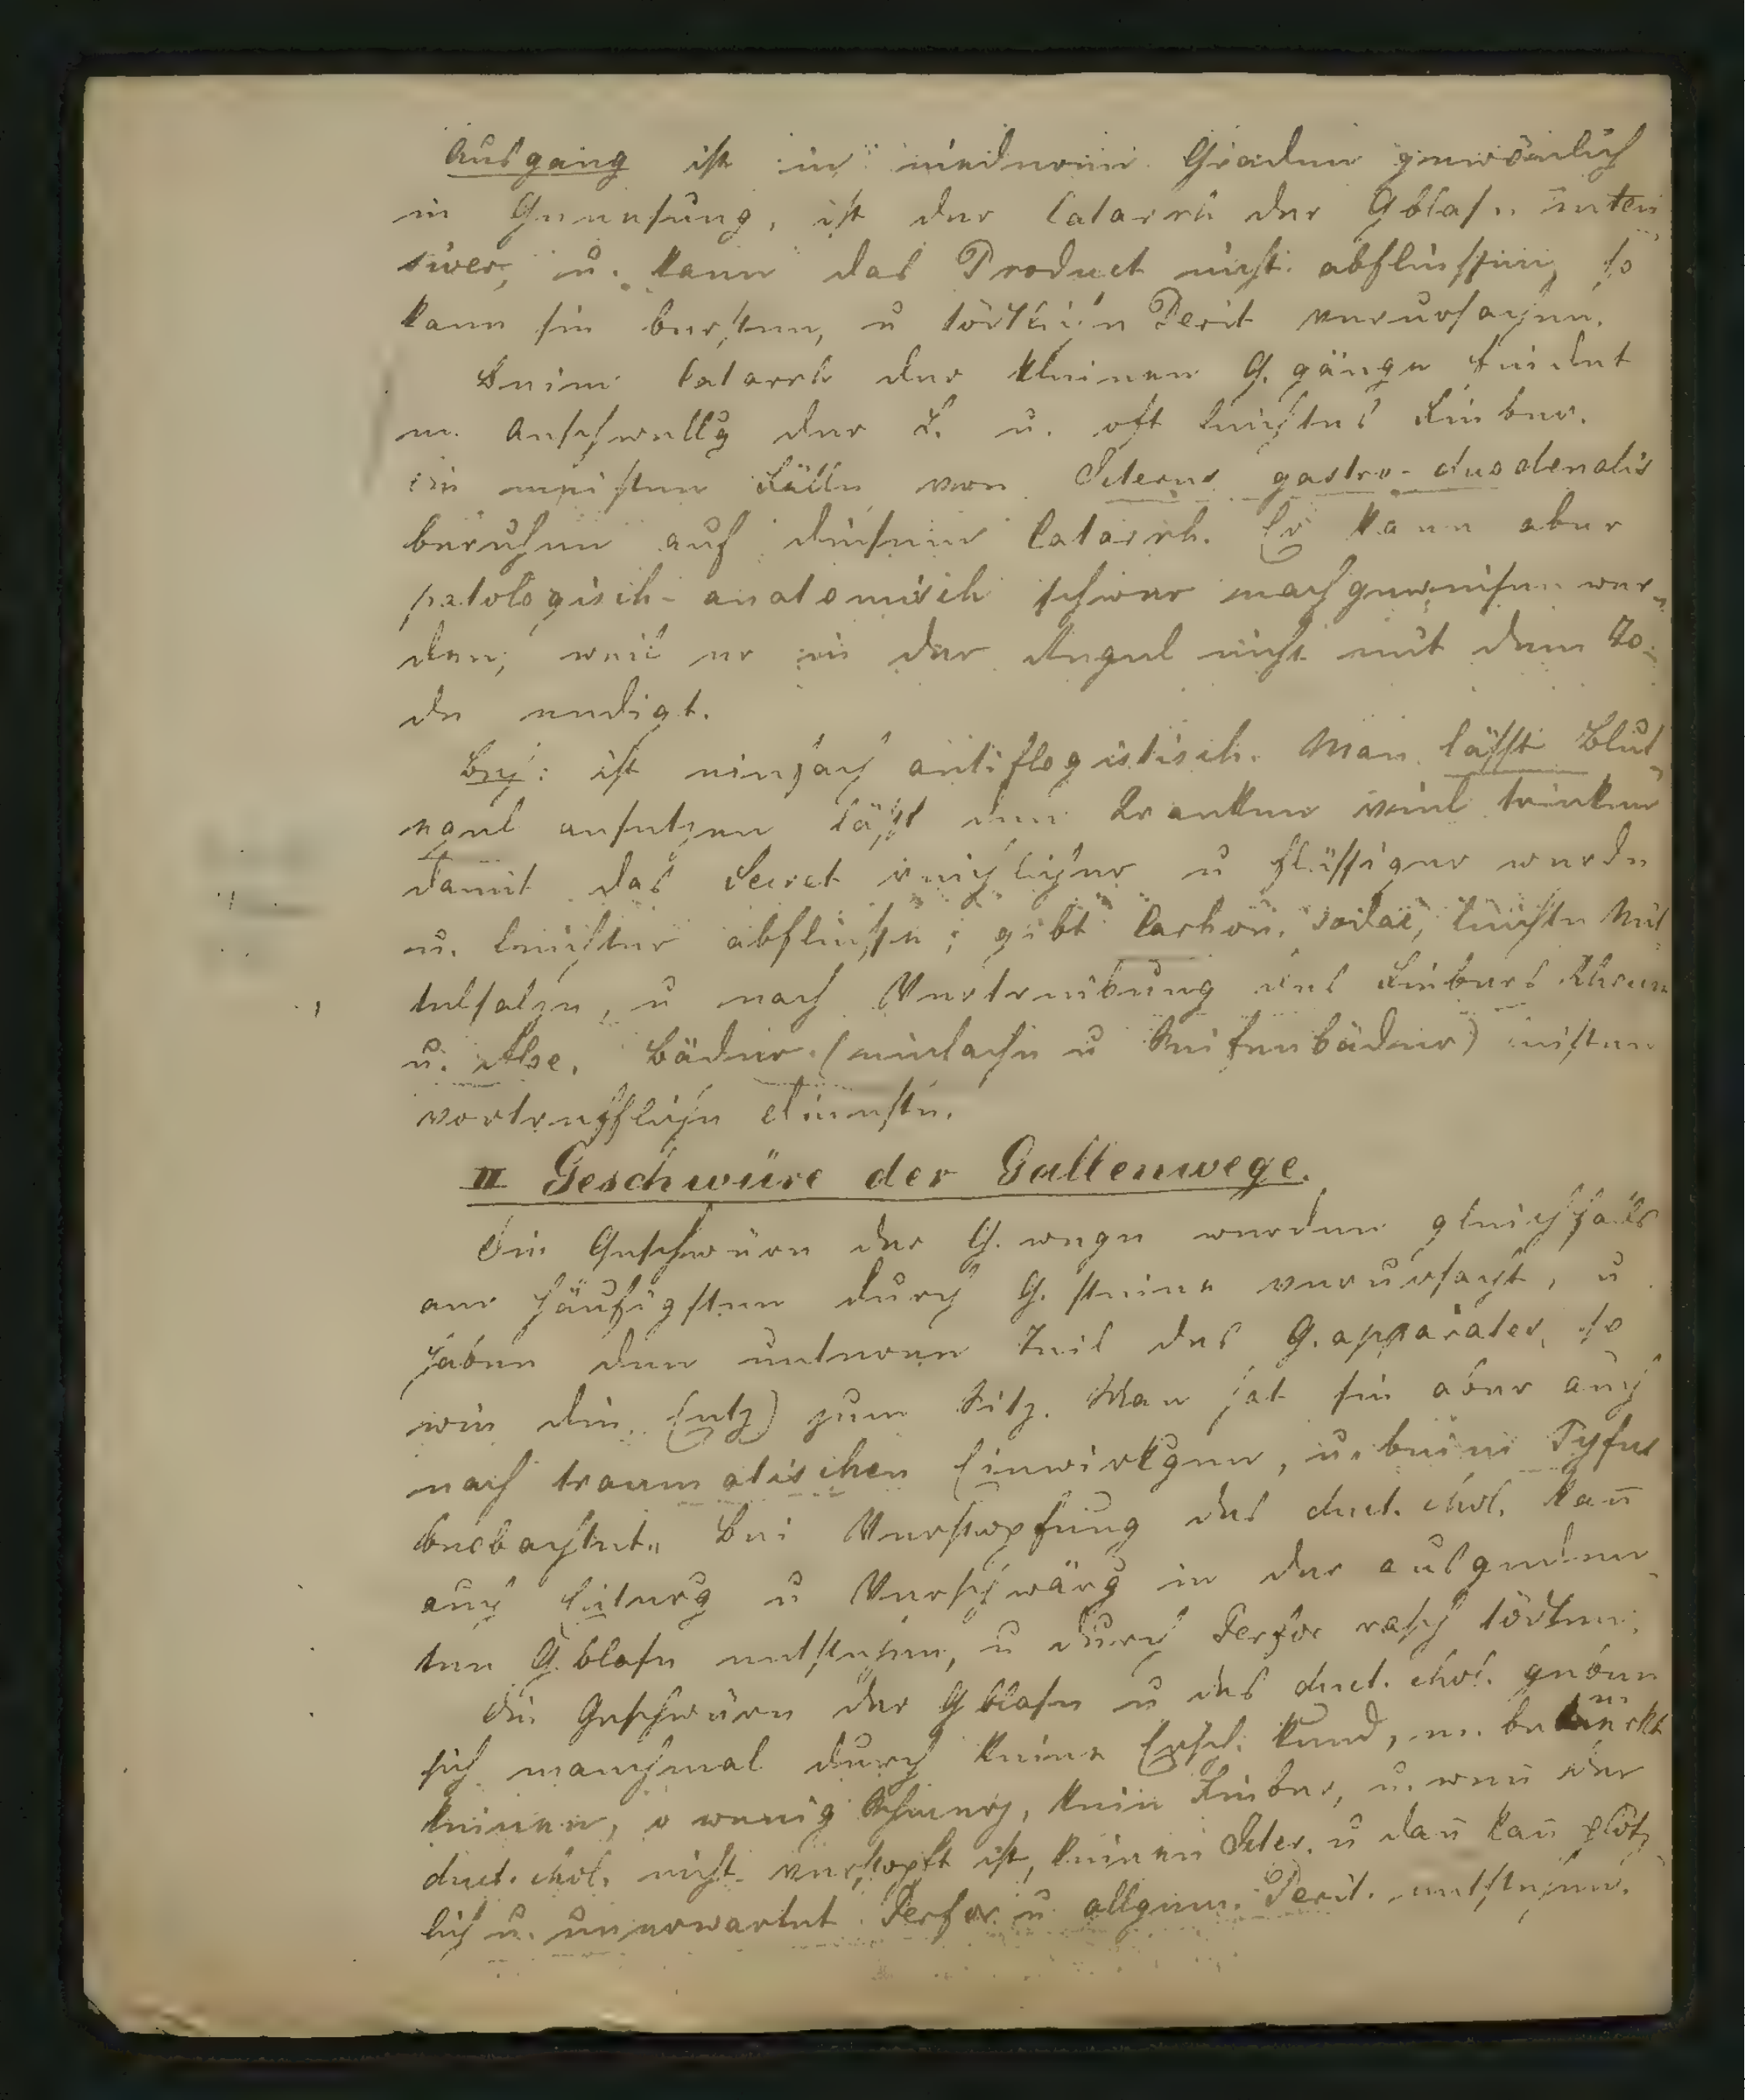 Ausgang ist in niederen Graden gewönlich
in Genesung, ist der Catarrh der Gblase inten
siver, u. kann das Product nicht abfliessen, so
kann sie bersten, u tödtliche Perit verursachen.
Beim Catarrh der kleinen G. gänge findet
m. Anschwellg der L. u. oft leichtes Fieber.
Die meisten Fälle von Icterus gastro-duodenalis
beruhen auf diesem Catarrh. Er kann aber
patologisch-anatomisch schwer nachgewiesen wer-
den, weil er in der Regel nicht mit dem To-
de endigt.
Beh: ist einfach antiflogistisch. Man lässt Blut
egel ansetzen läßt den Kranken viel trinken
damit das Secret reichlicher u flüssiger werde
u. leichter abfließe; gibt Carbon. sodae, leichte Mit
telsalze, u nach Vertreibung des Fiebers Rheum
u. Aloe. Bäder (einfache u Seifenbäder) leisten
vortreffliche Dienste.
II Geschwüre der Gallenwege.
Die Geschwüre der G. wege werden gleichfalls
am häufigsten durch G. steine verursacht, u
haben den unteren Teil des G. apparates, so
wie die Entz) zum Sitz. Man hat sie aber auch
nach traumatischen Einwirkgen, u. beim Tyfus
beobachtet. Bei Verstopfung des duct. chol. kañ
auch Eiterg u Verschwärg in der ausgedehn
ten G. blase entstehen, u durch Perfor rasch tödten.
Die Geschwüre der Gblase u des duct. chol. geben
sich manchmal durch keine Ersch. kund, m. bemerkt
keinen, o wenig Schmerz, kein Fieber, u. weñ der
duct. chol. nicht verstopft ist, keinen Icter. u dañ kañ plötz
lich u. unerwartet Perfor. u allgem. Perit. entstehen.